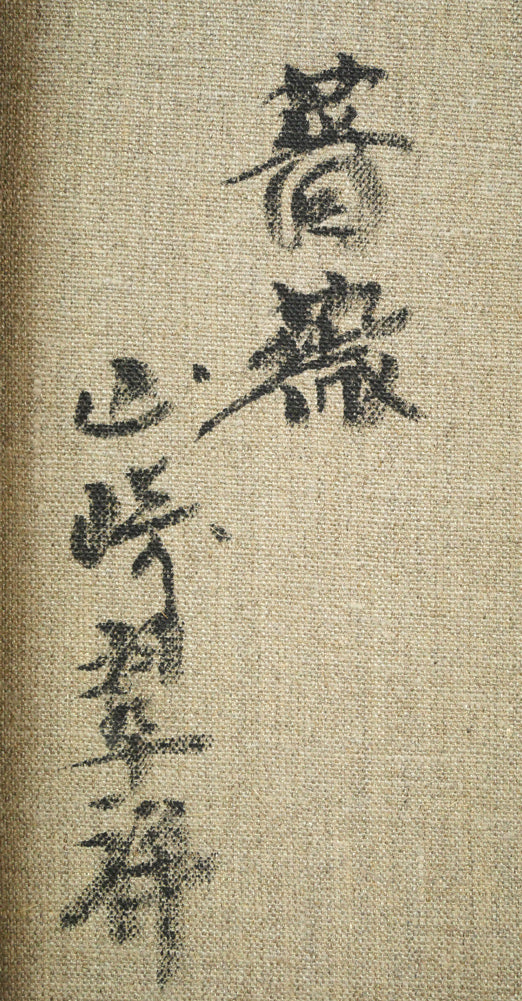 薔薇
山崎翠祥